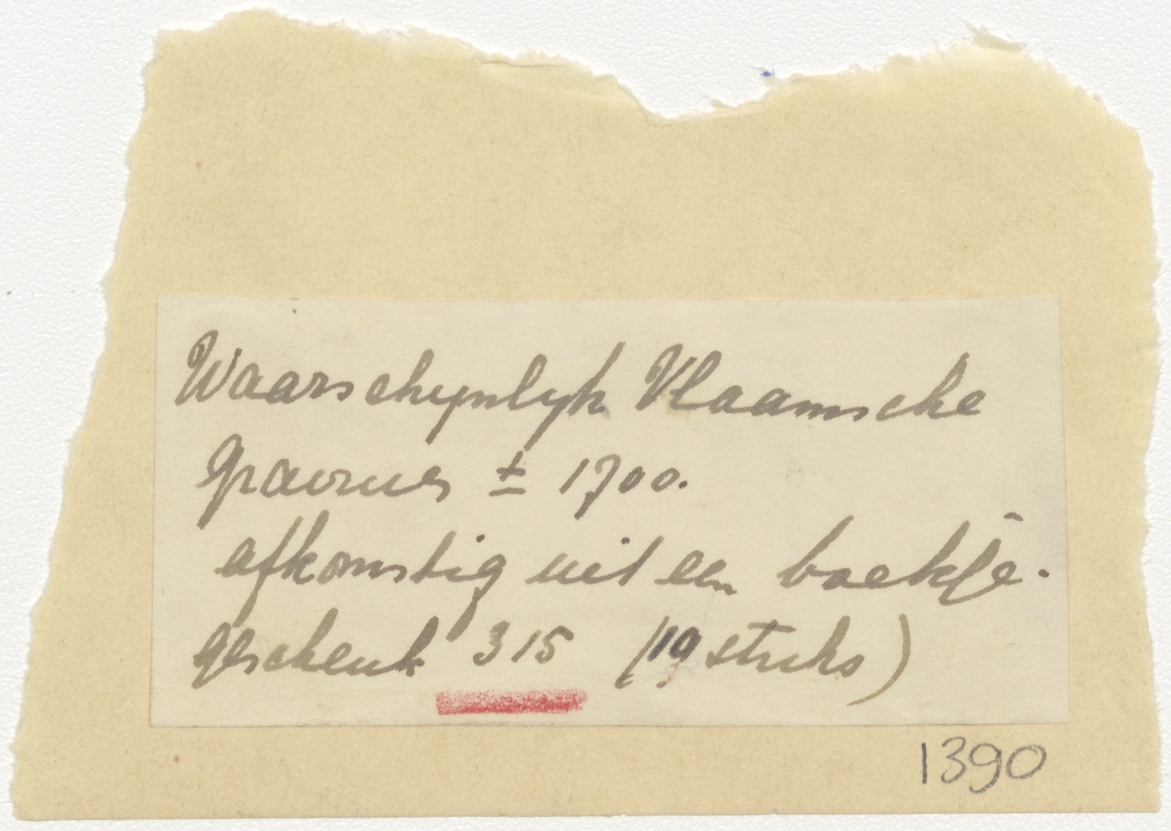 Waarschynlyk Vlaamsche
gravures ± 1700.
afkomstig uit een boekje.
geschenk 315 (19 stuks)
1390